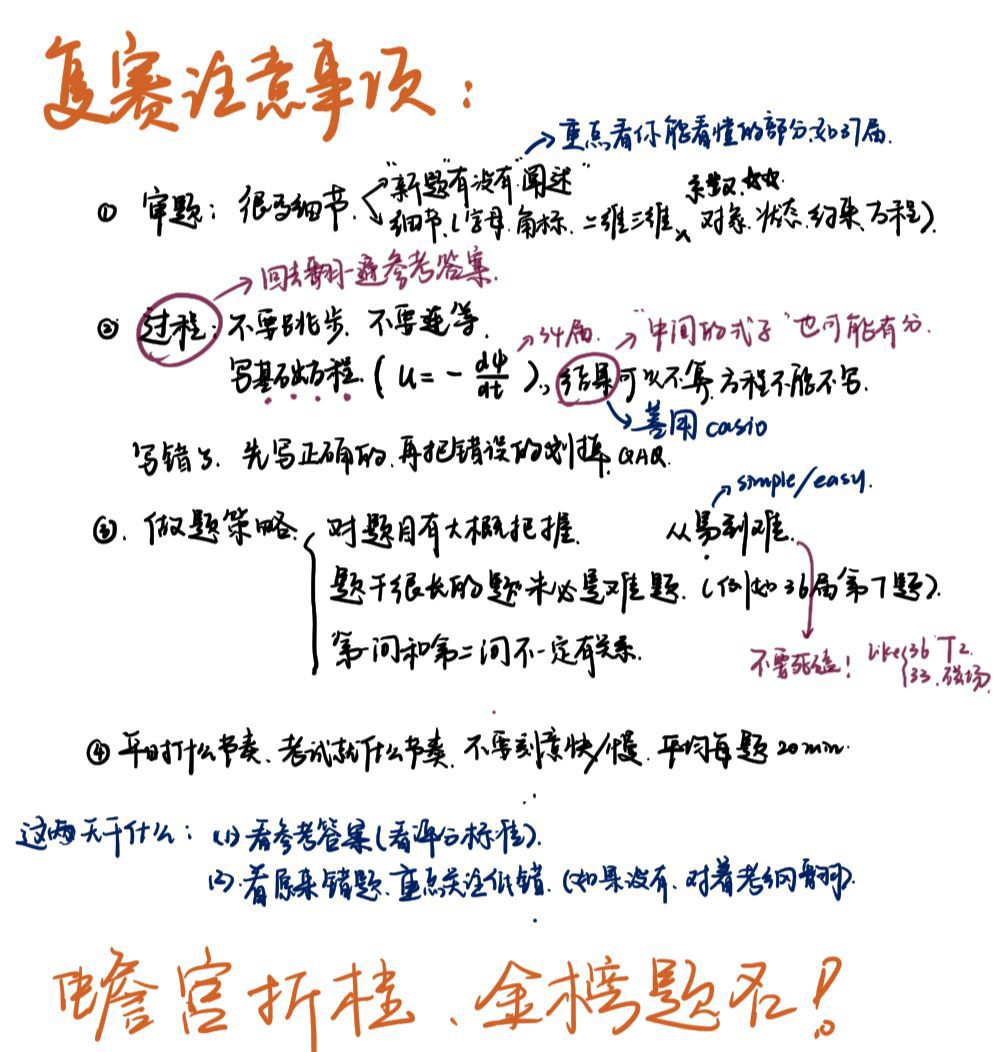 复赛注意事项:
重点看你能看懂的部分.如37届.
① 审题: 很多细节. "新题"有没有"阐述"
系数.
细节.(字母.角标.二维三维、对象.状态.约束.方程).
回去翻一遍参考答案.
② 过程: 不要跳步. 不要连等.
34届. "中间的式子"也可能有分.
写基础方程. (u = - dψ/dt ), 结果可以不算. 方程不能不写.
善用 casio
写错了. 先写正确的.再把错误的划掉. QAQ.
simple/easy.
③. 做题策略. 对题目有大概把握. 从易到难.
题干很长的题未必是难题. (例如36届第7题).
第一问和第二问不一定有关系.
不要死磕! Like 36 T2.
33.磁场.
④ 平时什么节奏、考试就什么节奏. 不要刻意快/慢. 平均每题20min.
这两天干什么: (1) 看参考答案(看评分标准).
(2).看原来错题.重点关注低错. (如果没有.对着考纲翻).
蟾宫折桂、金榜题名!